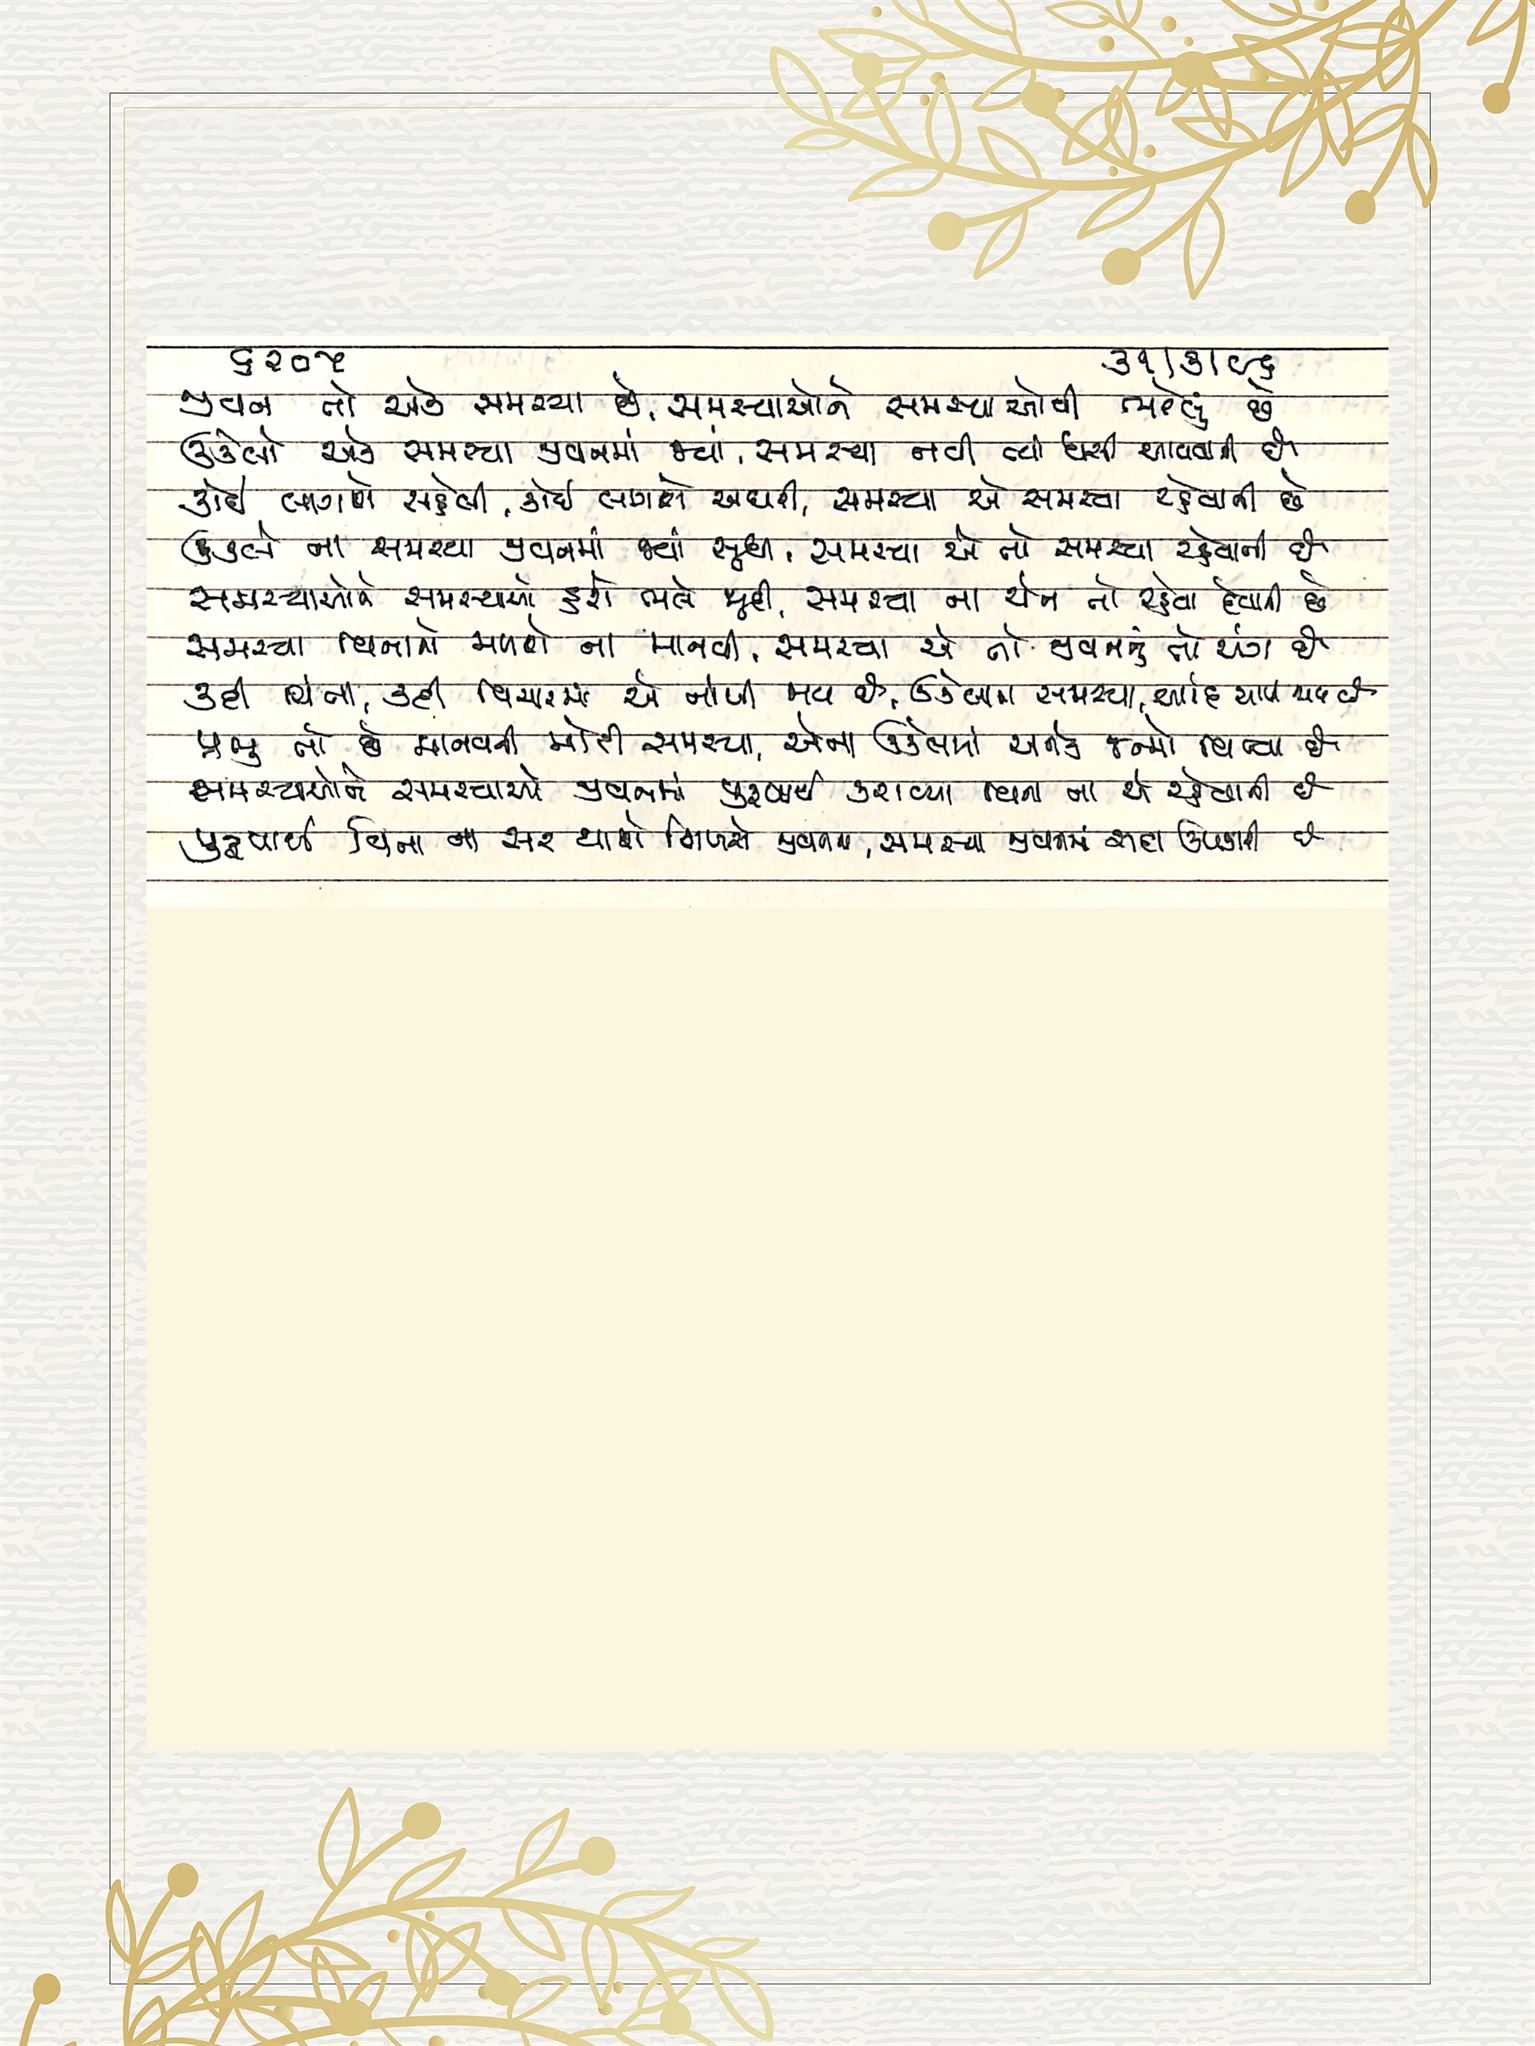 ૬૨૦૫ ૩૧/૩/૯૬
જીવન તો એક સમસ્યા છે, સમસ્યાઓને સમસ્યાઓથી ભરેલું છે
ઉકેલો એક સમસ્યા જીવનમાં જ્યાં, સમસ્યા નવી ત્યાં ધસી આવવાની છે
કોઈ લાગશે સહેલી, કોઈ લાગશે અઘરી, સમસ્યા એ સમસ્યા રહેવાની છે
ઉકલે ના સમસ્યા જીવનમાં જ્યાં સુધી, સમસ્યા એ તો સમસ્યા રહેવાની છે
સમસ્યાઓને સમસ્યાઓ હશે ભલે જુદી, સમસ્યા ના ચેન તો રહેવા દેવાની છે
સમસ્યા વિનાનો મળશે ના માનવી, સમસ્યા એ તો જીવનનું તો અંગ છે
કદી ચિંતા, કદી વિચારમાં એ નાંખી જાય છે, ઉકેલાતા સમસ્યા, થાય છે
પ્રભુ તો છે માનવની મોટી સમસ્યા, એના ઉકેલમાં અનેક જન્મો વિત્યા છે
સમસ્યાઓને સમસ્યાઓ જીવનમાં પુરુષાર્થ કરાવ્યા વિના ના એ રહેવાની છે
પુરુષાર્થ વિના ના સર થાશે જીવનમાં, સમસ્યા જીવનમાં ઉપકારી છે